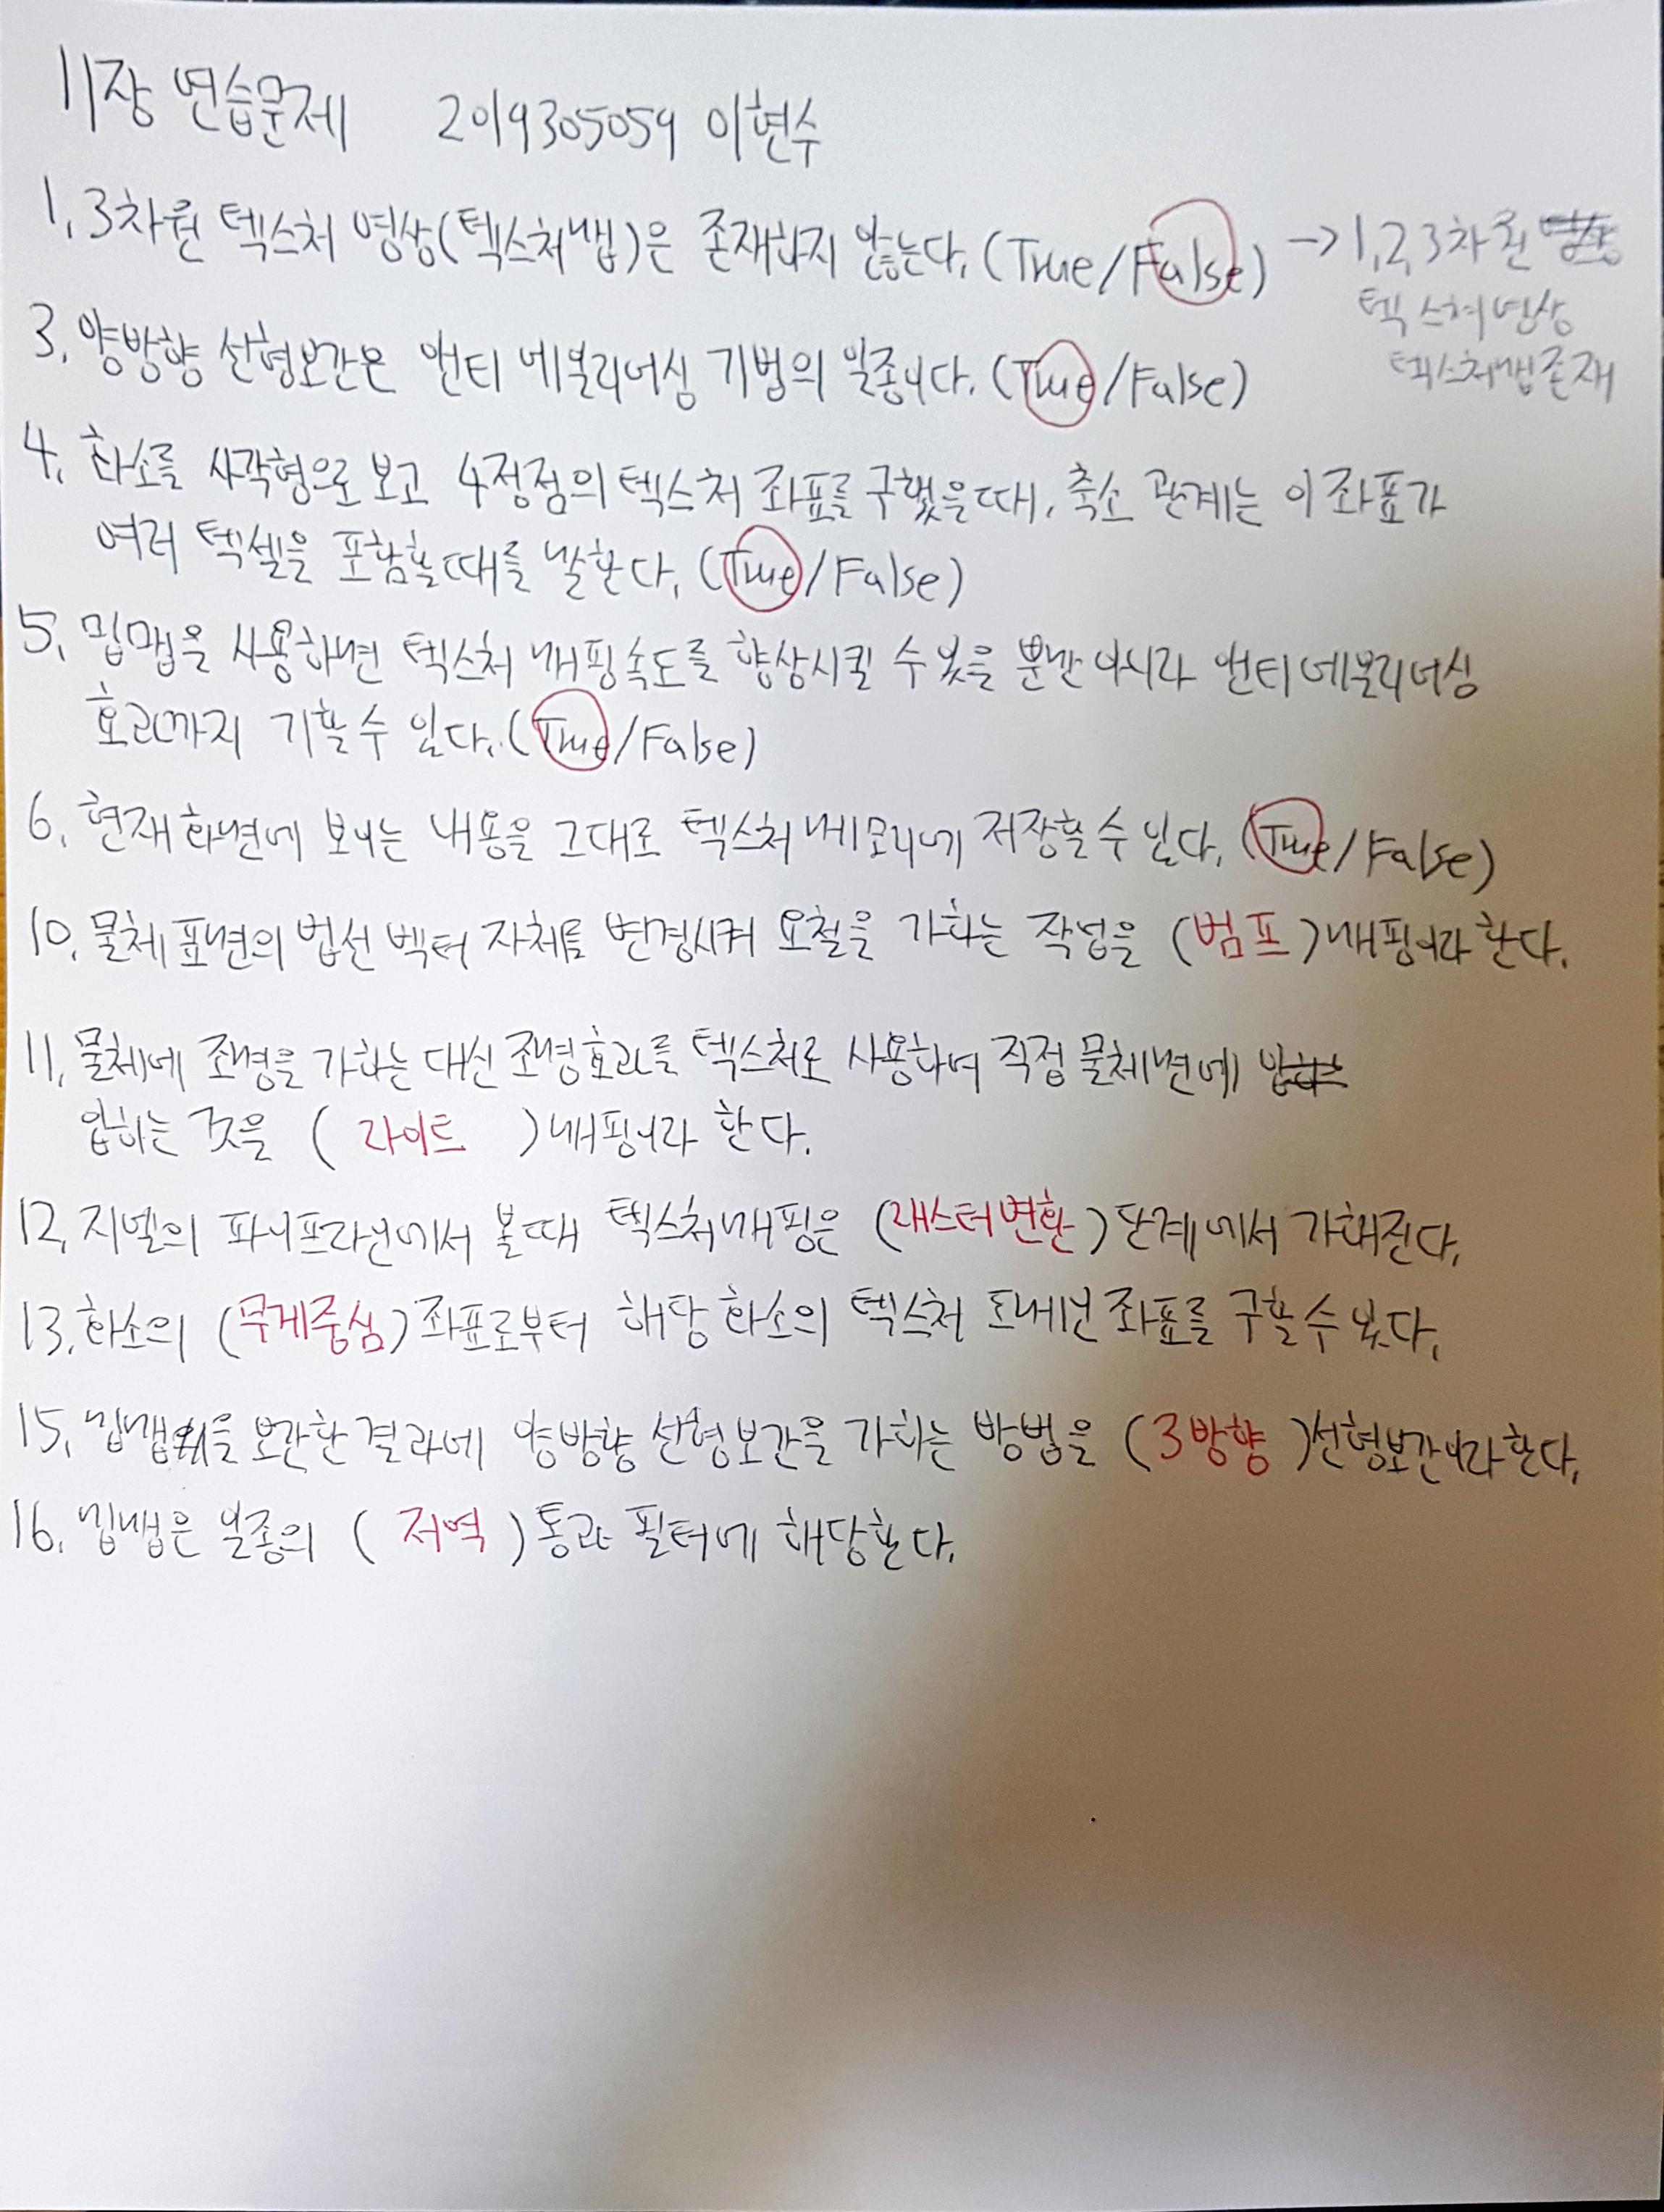 11장 연습문제 2019305059 이현수
1, 3차원 텍스처 영상(텍스처맵)은 존재하지 않는다. (True/False) → 1,2,3차원
텍스처영상
텍스처맵존재
3, 양방향 선형보간은 앤티 에일리어싱 기법의 일종이다. (True/False)
4, 화소를 사각형으로 보고 4정점의 텍스처 좌표를 구했을때, 축소 관계는 이 좌표가
여러 텍셀을 포함할때를 말한다. (True/False)
5, 밉맵을 사용하면 텍스처 매핑속도를 향상시킬 수 있을 뿐만 아니라 앤티에일리어싱
효과까지 기할수 있다. (True/False)
6, 현재 화면에 보이는 내용을 그대로 텍스처메모리에 저장할수 있다. (True/False)
10, 물체표면의 법선 벡터 자체를 변경시켜 요철을 가하는 작업을 (범프)매핑이라 한다.
11, 물체에 조명을 가하는 대신 조명효과를 텍스처로 사용하여 직접 물체면에
입히는 것을 ( 라이트 )매핑이라 한다.
12, 지엘의 파이프라인에서 볼때 텍스처매핑은 (래스터변환)단계에서 가해진다.
13, 화소의 (무게중심)좌표로부터 해당 화소의 텍스처 도메인 좌표를 구할수 있다.
15, 밉맵을 보간한 결과에 양방향 선형보간을 가하는 방법을 (3방향)선형보간이라한다.
16, 밉맵은 일종의 ( 저역 )통과 필터에 해당한다.